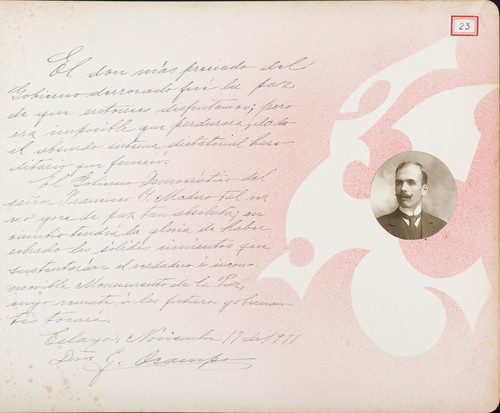 23
El don más preciado del
Gobierno derrocado fué la paz
de que entonces disfrutamos; pero
era imposible que perdurara, dado
el absurdo sistema dictatorial here
ditario que feneció.
El Gobierno Democrático del
señor Francisco I. Madero tal vez
no goce de paz tan absoluta; en
cambio tendrá la gloria de haber
echado los sólidos cimientos que
sustentarán el verdadero é incon-
movible Monumento de la Paz,
cuyo remate á los futuros gobernan
tes tocará.
Celaya, Noviembre 17 de 1911
G. Ocampo